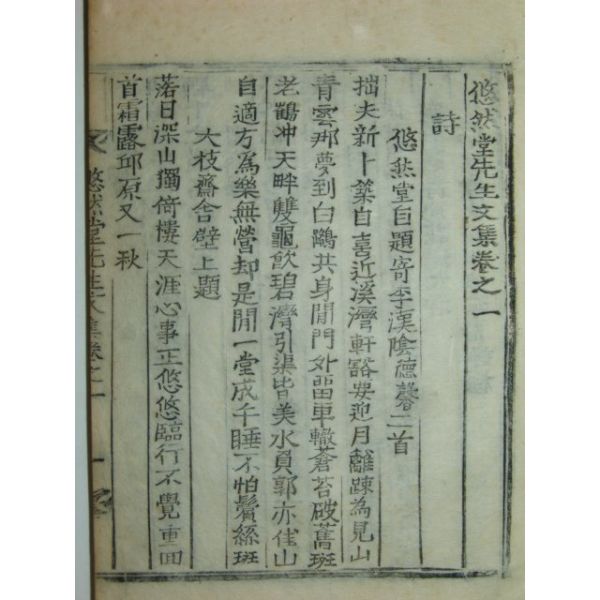 悠然堂先生文集卷之一
詩
悠然堂自題寄李漢陰德馨二首
拙夫新卜築自喜近溪灣軒豁安迎月離踈為見山
青雲那夢到白鷗共身閒門外留車轍蒼苔破舊斑
老鶴冲天畔雙龜飲碧灣引渠皆美水負郭亦佳山
自適方為樂無營却是閒一堂成千睡不怕鬢絲斑
大枝齋舍壁上題
落日深山獨倚樓天涯心事正悠悠臨行不覺重回
首霜露邱原又一秋
悠然堂先生文集卷之一
一